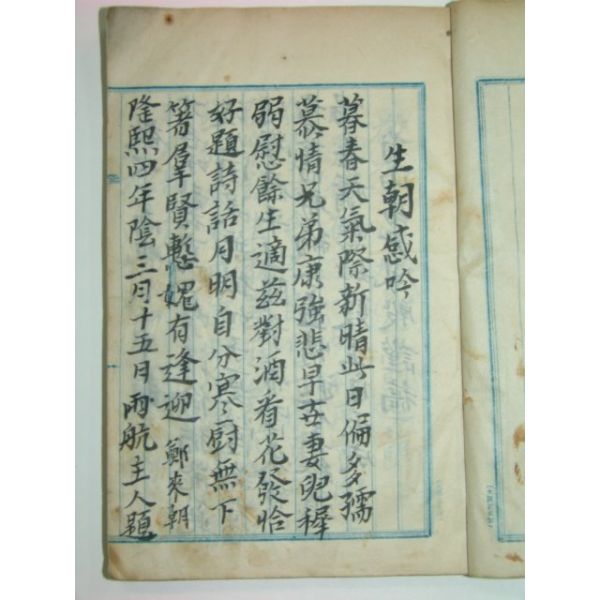 生朝感吟
暮春天氣際新晴此日偏多孺
慕情兄弟康強悲早世妻兒穉
弱慰餘生適茲對酒看花發恰
好題詩話月明自分寒廚無下
箸羣賢慙媿有逢迎 鄭來朝
隆熙四年陰三月十五日雨航主人題